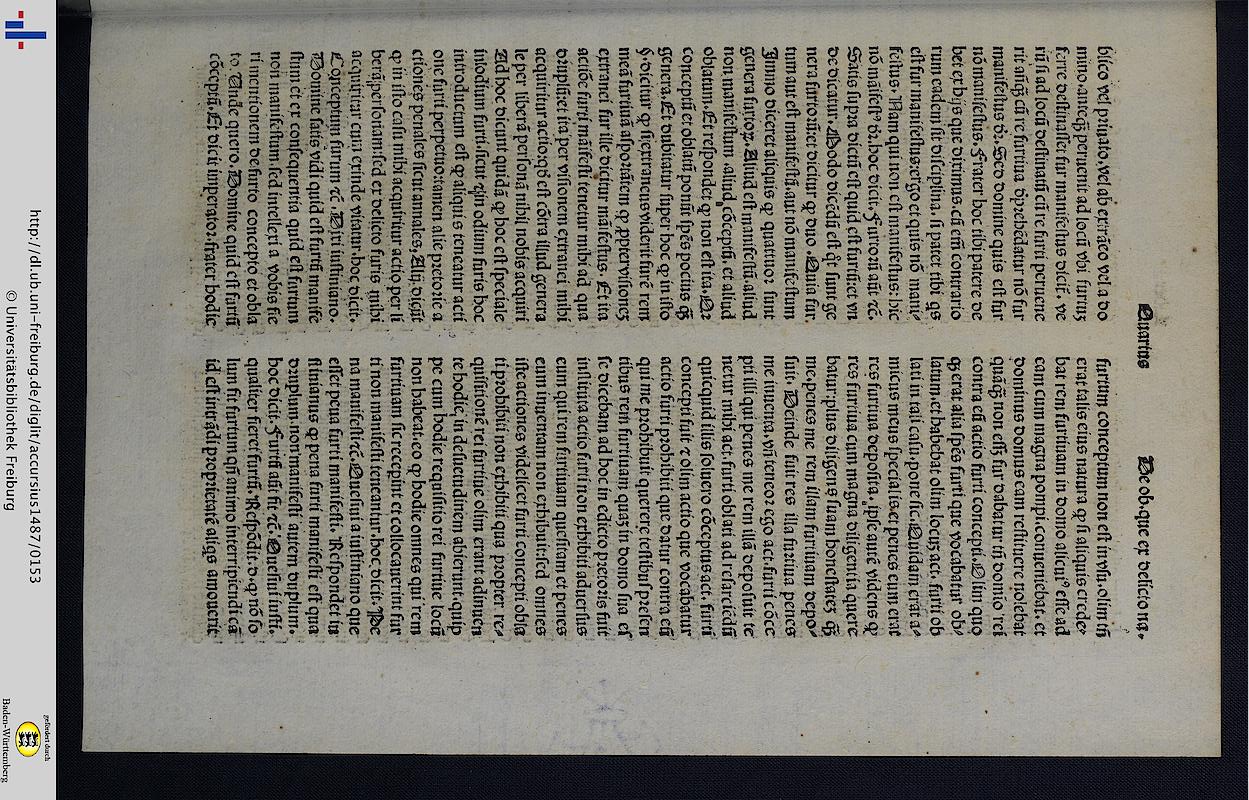 Quartus
De ob. que ex delicto na.
blico vel priuato. vel ab extraneo vel a do
mino. anteq̃ȝ perueniat ad locũ vbi furtuȝ
ferre destinasset fur manifestus dicit̃. ve
rit anteq̃ȝ cũ re furtiua dep̃hẽdatur nõ fur
manifestus ẽ. Sed domine quis est fur
nõ manifestus. Frater hoc tibi patere de
bet ex hijs que diximus. cũ eñ contrario
rum eadem sit disciplina. si patet tibi q̃s
est fur manifestus: ergo et quis nõ mani
festus. Nam qui non est manifestus: hic
nõ manifest⁹ ẽ. hoc dicit. Furtorũ aũt. ⁊c̃.
Satis supra dictũ est quid est furtũ: et vn
de dicatur. Modo dicẽdũ est q̃t sunt ge
nera furto⁊: et dicitur ꝙ duo. Nam fur
tum aut est manifestũ. aut nõ manifestum
Immo diceret aliquis ꝙ quattuor sunt
genera furtoꝝ. Aliud est manifestũ. aliud
non manifestum. aliud cõceptũ. et aliud
oblatum. Et respondet ꝙ non est ita. Q2
conceptũ et oblatũ potius sp̃es pocius q̃ȝ
genera. Et dubitatur super hoc ꝙ in isto
§ dicitur ꝙ si extraneus viderit furẽ rem
meã furtiuã asportãtem ꝙ ꝓpter visionẽȝ
extranei fur ille dicitur mãifestus. Et ita
actiõe furti mãifesti tenetur mihi ad qua
druplũ: et ita per visionem extranei mihi
acquiritur actio: qd̃ est cõtra illud genera
le per liberã personã nihil nobis acquiri
Ad hoc dicunt quidã ꝙ hoc est speciale
in odium furti. sicut q̃n odium furtis hoc
introductum est ꝙ aliquis teneatur acti
one furti perpetuo: tamen alie pretorie a
ctiones penales sunt annales. Alij dicũt
ꝙ in isto casu mihi acquiritur actio per li
berã personam: sed ex delicto furis mihi
acquiritur cum exinde vitatur. hoc dicit.
Conceptum furtum ⁊c̃. Dixi iustiniano.
Domine satis vidi quid est furtũ manife
stum: et ex consequentia quid est furtum
non manifestum sed intellexi a vobis fie
ri mentionem de furto concepto et obla
to Unde quero. Domine quid est furtũ
cõceptũ. Et dicit imperator. frater hodie
furtum conceptum non est in vsu. olim tñ
erat talis eius natura ꝙ si aliquis crede
bat rem furtiuam in domo alicui⁹ esse ad
eam cum magna pompa conueniebat. et
dominus domus eam restituere nolebat
quãq̃ȝ non eẽt fur dabatur tñ domino rei
contra eũ actio furti concepti. Olim quo
q̃ȝ erat alia sp̃es furti que vocabatur ob
latum. et habebat olim locuȝ act. furti ob
lati in tali casu. pone sic. Quidam erat a
micus meus specialis: et penes eum erat
res furtiua deposita. ipse autẽ videns ꝙ
res furtiua cum magna diligentia quere
batur: plus diligens suam honestateȝ q̃ȝ
me. penes me rem illam furtiuam depo
suit. Deinde fuit res illa furtiua penes
me inuenta. vñ teneor ego act. furti cõce
pti illi qui penes me rem illã deposuit te
netur mihi act. furti oblati ad resarciẽdũ
quicquid illis soluero cõceptus act. furti
concepti fuit ⁊ olim actio que vocabatur
actio furti prohibiti que datur contra eũ
qui me prohibuit querere testibus presen
tibus rem furtiuam quaȝ in domo sua eẽ
se dicebam ad hoc in edicto pretoris fuit
instituta actio furti non exhibiti aduersus
eum qui rem furtiuam quesitam et penes
eum inuentam non exhibuit: sed omnes
iste actiones videlicet furti concepti obla
ti prohibiti non exhibiti qua propter re
quisitionẽ rei furtiue olim erant adinuen
te hodie in desuetudinem abierunt. quip
pe cum hodie requisitio rei furtiue locũ
non habeat. eo ꝙ hodie omnes qui rem
furtiuam sic receperint et collocauerint fur
ti non manifesti teneantur. hoc dicit. Pe
na manifesti: ⁊c̃. Quesiui a iustiniano que
esset pena furti manifesti. Respondet iu
stinianus ꝙ pena furti manifesti est qua
druplum non manifesti autem duplum.
hoc dicit. Furtũ aũt fit ⁊c̃. Quesiui iusti.
qualiter fieret furtũ. Respõdit. d. ꝙ nõ so
lum fit furtum q̃n animo intercipiendi cã
id est furãdi proprietatẽ aliq̃s amouerit
http://dl.ub.uni-freiburg.de/diglit/accursius1487/0153
© Universitätsbibliothek Freiburg
gefördert durch
Baden-Württemberg